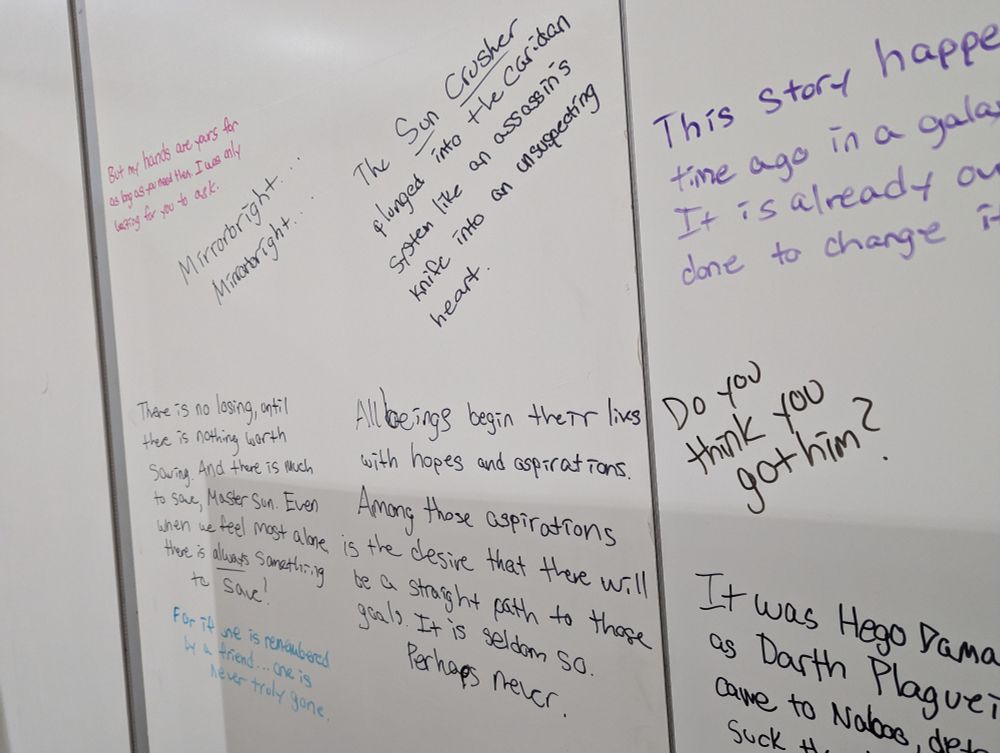 But my hands are yours for
as long as you need them. I was only
waiting for you to ask.
Mirrorbright...
Mirrorbright....
The Sun Crusher
plunged into the Caridan
system like an assassin's
knife into an unsuspecting
heart.
This story happe
time ago in a gala
It is already ov
done to change it
There is no losing, until
there is nothing worth
Saving. And there is much
to save, Master Sun. Even
when we feel most alone,
there is always something
to save!
For if one is remembered
by a friend... one is
never truly gone.
All beings begin their lives
with hopes and aspirations.
Among those aspirations
is the desire that there will
be a straight path to those
goals. It is seldom so.
Perhaps never.
Do you
think you
got him?
It was Hego Dama
as Darth Plaguei
came to Naboo,
suck